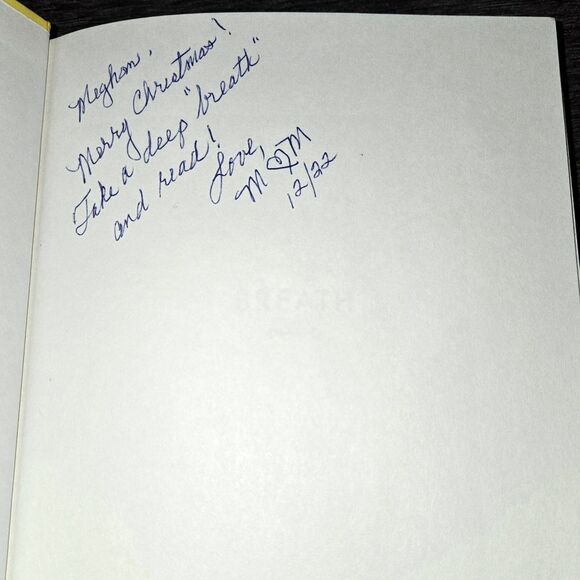 Meghan,
Merry Christmas!
Take a deep "breath"
and read!
Love,
M♡M
12/22
BREATH